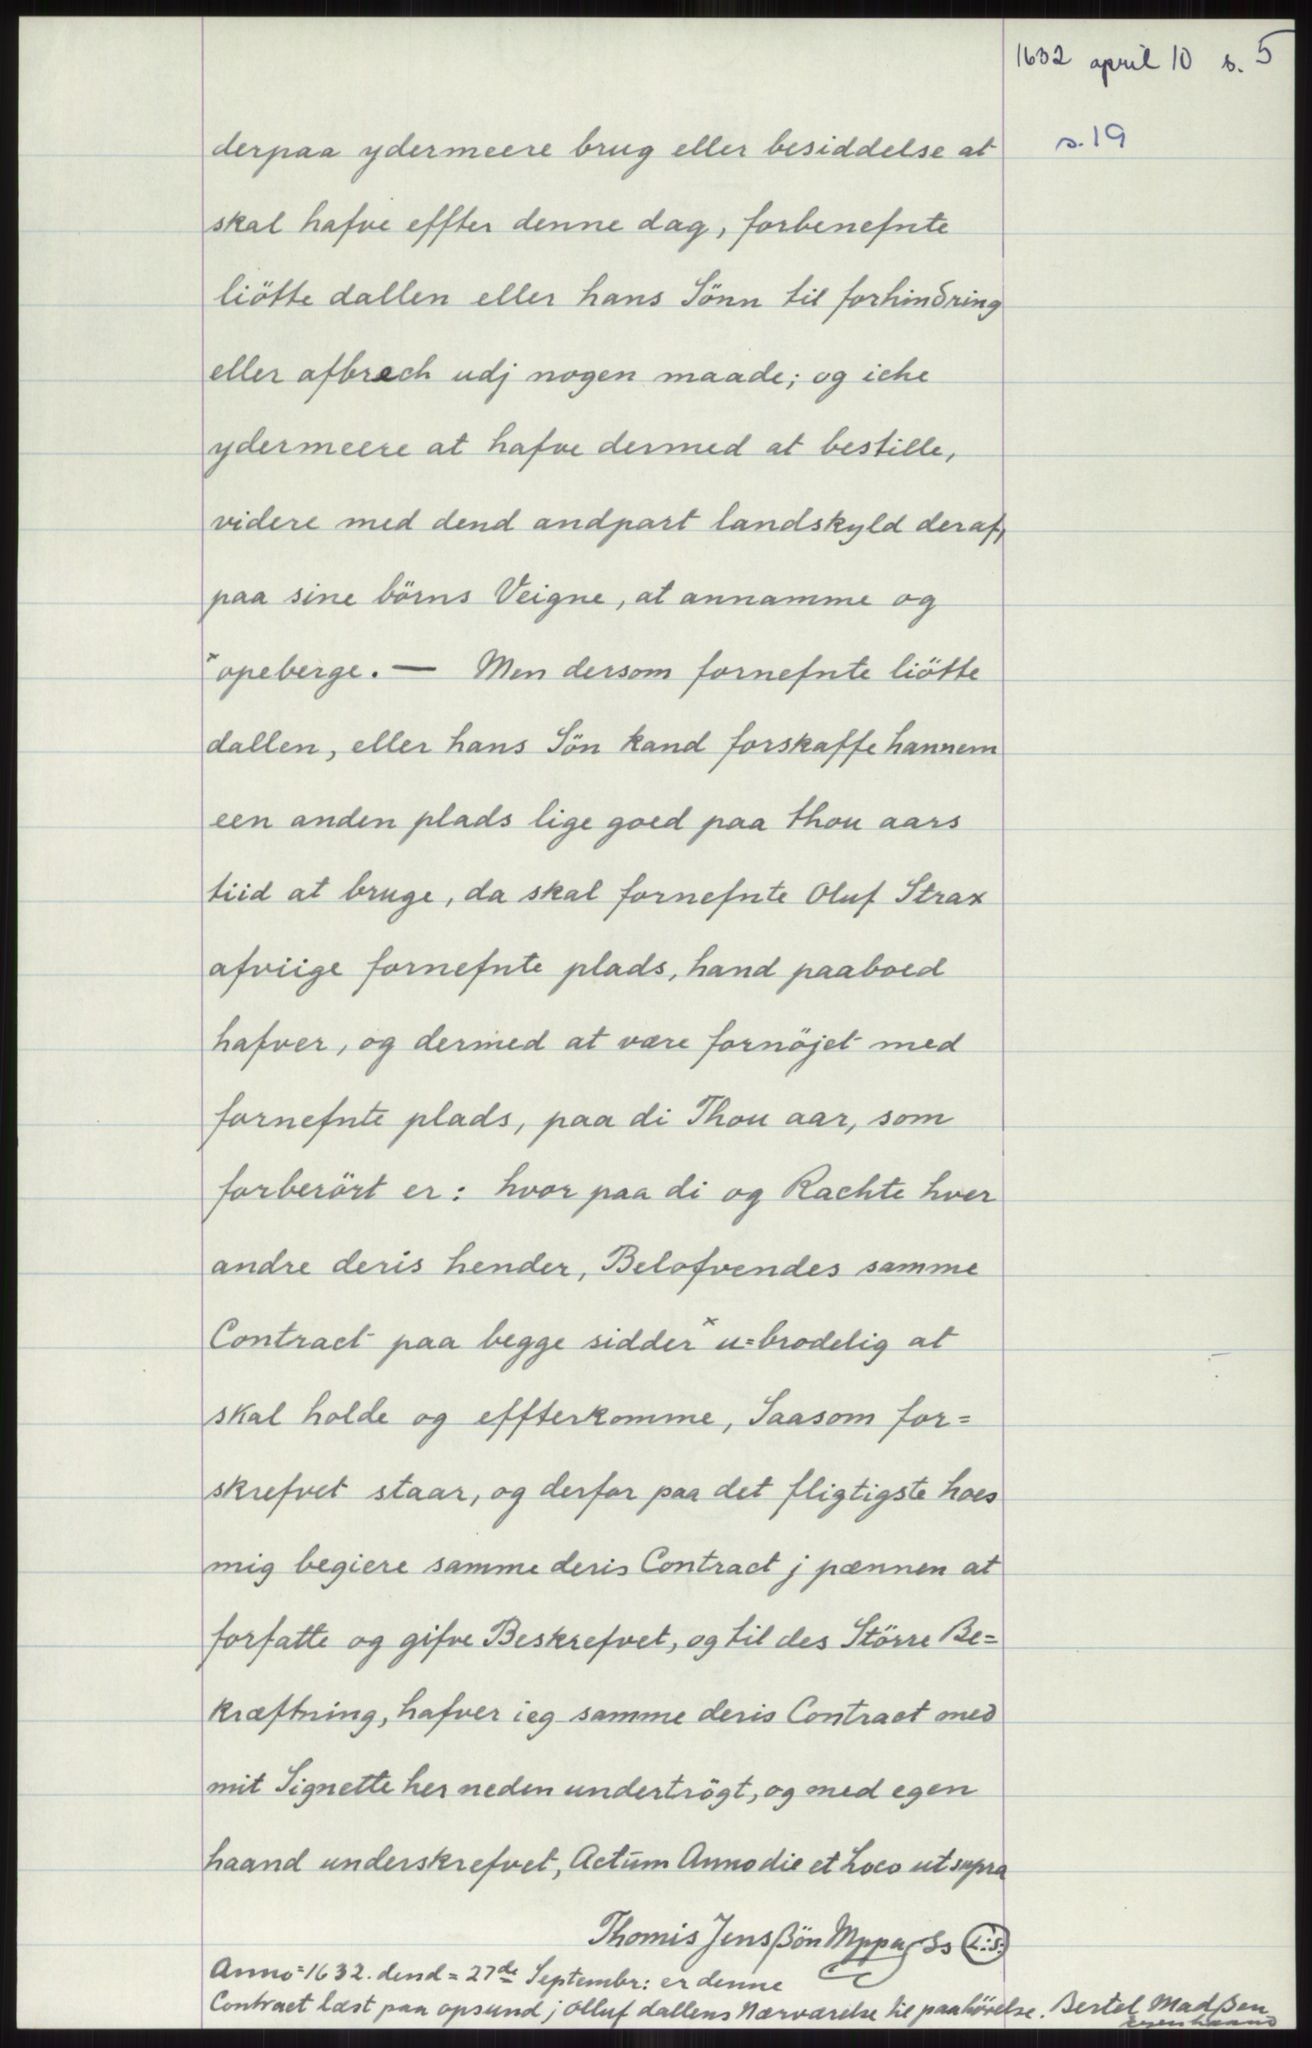 1632 april 10 s. 5
s. 19
derpaa ydermeere brug eller besiddelse at
skal hafve effter denne dag, forbenefnte
liötte dallen eller hans Sönn til forhindring
eller afbrech udj nogen maade; og iche
ydermeere at hafve dermed at bestille,
videre med dend andpart landskyld deraf,
paa sine börns Veigne, at annamme og
x opeberge. — Men dersom fornefnte liötte
dallen, eller hans Sön kand forskaffe hannem
een anden plads lige goed paa thou aars
tiid at bruge, da skal fornefnte Oluf Strax
afviige fornefnte plads, hand paaboed
hafver, og dermed at være fornöjet med
fornefnte plads, paa di Thou aar, som
forberört er: hvor paa di og Rachte hver
andre deris hender, Belofvendes samme
Contract paa begge sidder x u=brodelig at
skal holde og effterkomme, Saasom for=
skrefvet staar, og derfor paa det fligtigste hoes
mig begiere samme deris Contract j pænnen at
forfatte og gifve Beskrefvet, og til des Större Be=
kræftning, hafver ieg samme deris Contract med
mit Signette her neden undertrögt, og med egen
haand underskrefvet, Actum Anno die et Loco ut supra
Thomis Jensßön Mppa Ss L:S:
Anno=1632. dend=27de Septembr: er denne
Contract læst paa opsund j Olluf dallens Nærværelse til paahörelse. Bertel Madßen
egenhaand